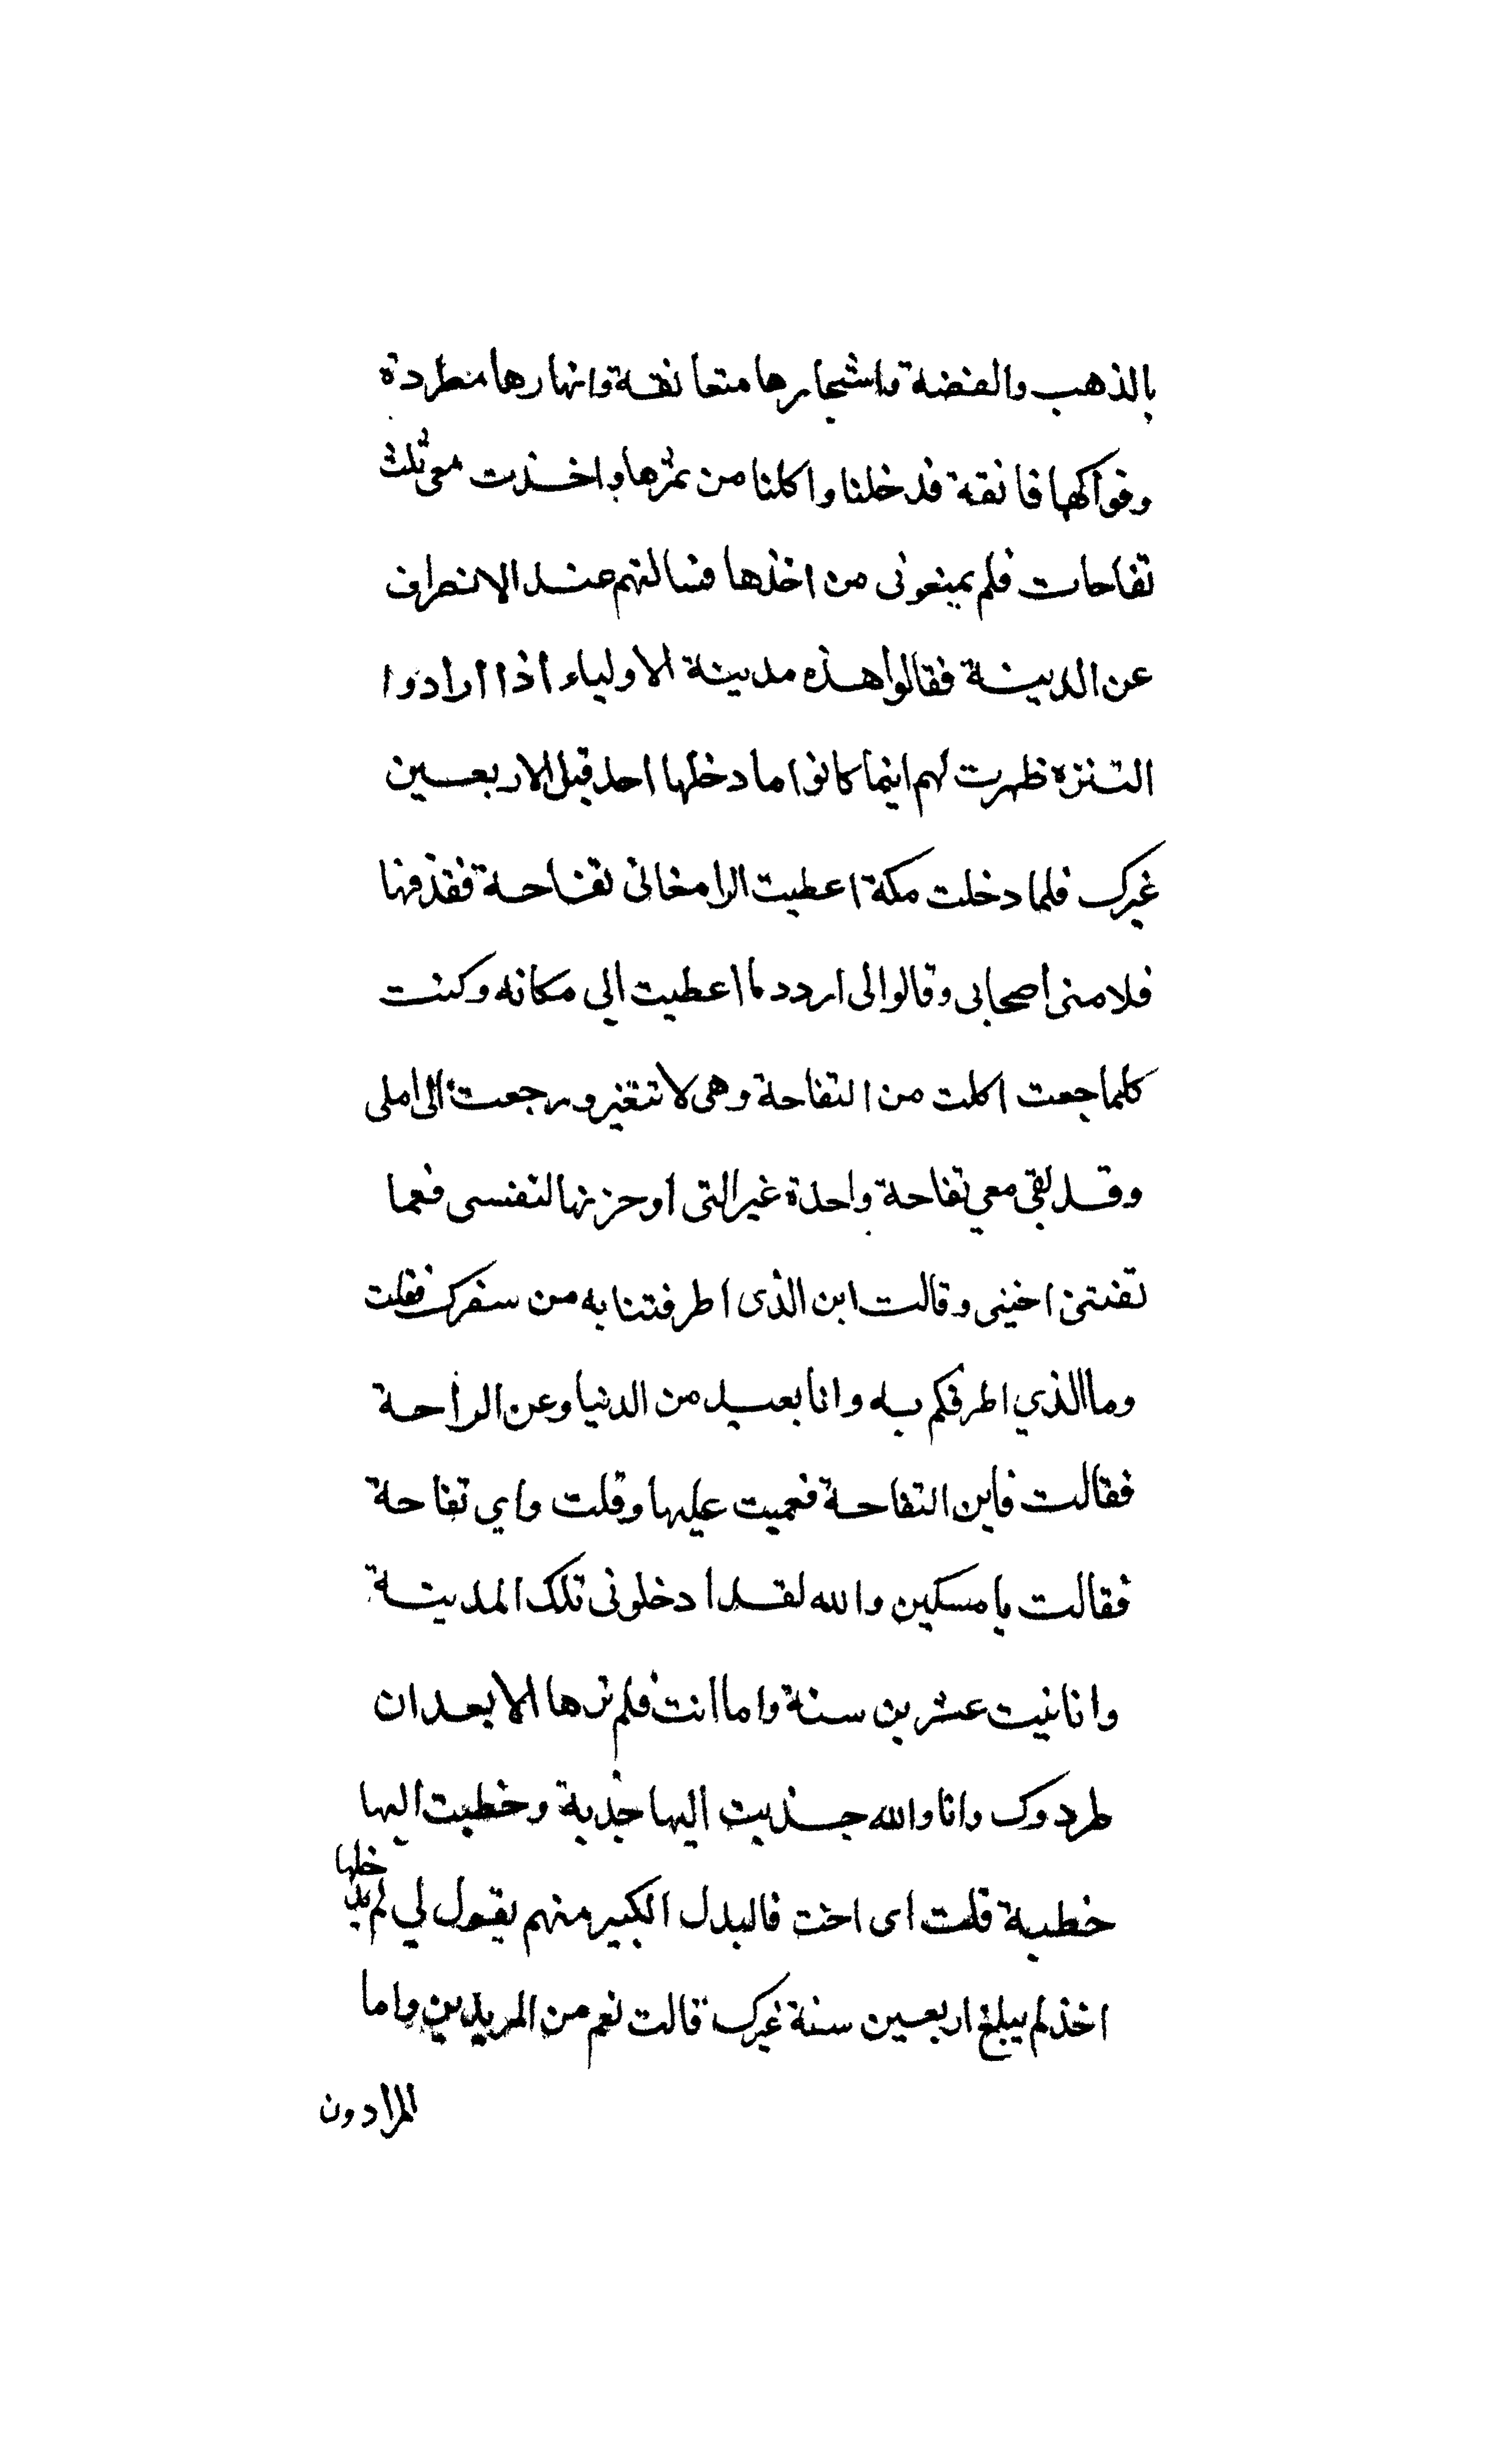 بالذهب والفضة واشجارها متعانقة وانهارها مطردة
وفواكهها فائقة فدخلنا واكلنا من ثمرها واخذت معى ثلث
تفاحات فلم يمنعونى من اخذها فسالتهم عند الانصراف
عن المدينة فقالوا هذه مدينة الاولياء اذا ارادوا
التنزه ظهرت لهم اينما كانوا ما دخلها احد قبل الاربعين
غيرك فلما دخلت مكة اعطيت الدامغانى تفاحة فقذفها
فلامنى اصحابى وقالوا لى اردد ما اعطيت الي مكانه وكنت
كلما جعت اكلت من التفاحة وهى لا تتغير ورجعت الى املى
وقد بقى معي تفاحة واحدة غير التى اوحزتها لنفسى فعما
تفنتنى اختى وقالت اين الذى اطرفتنا به من سفرك فقلت
وما الذي اطرفكم به وانا بعيد من الدنيا وعن الراحة
فقالت فاين التفاحة فعميت عليها وقلت واي تفاحة
فقالت يا مسكين والله لقد ادخلونى تلك المدينة
وانا بنيت عشرين سنة واما انت فلم ترها الا بعد ان
طردوك وانا والله جذبت اليها جذبة وخطبت اليها
خطبة قلت اى اخت فالبدل الكبير منهم يقول لي لم يدخلها
احد لم يبلغ اربعين سنة غيرك قالت نعم من المريدين واما
المرادون